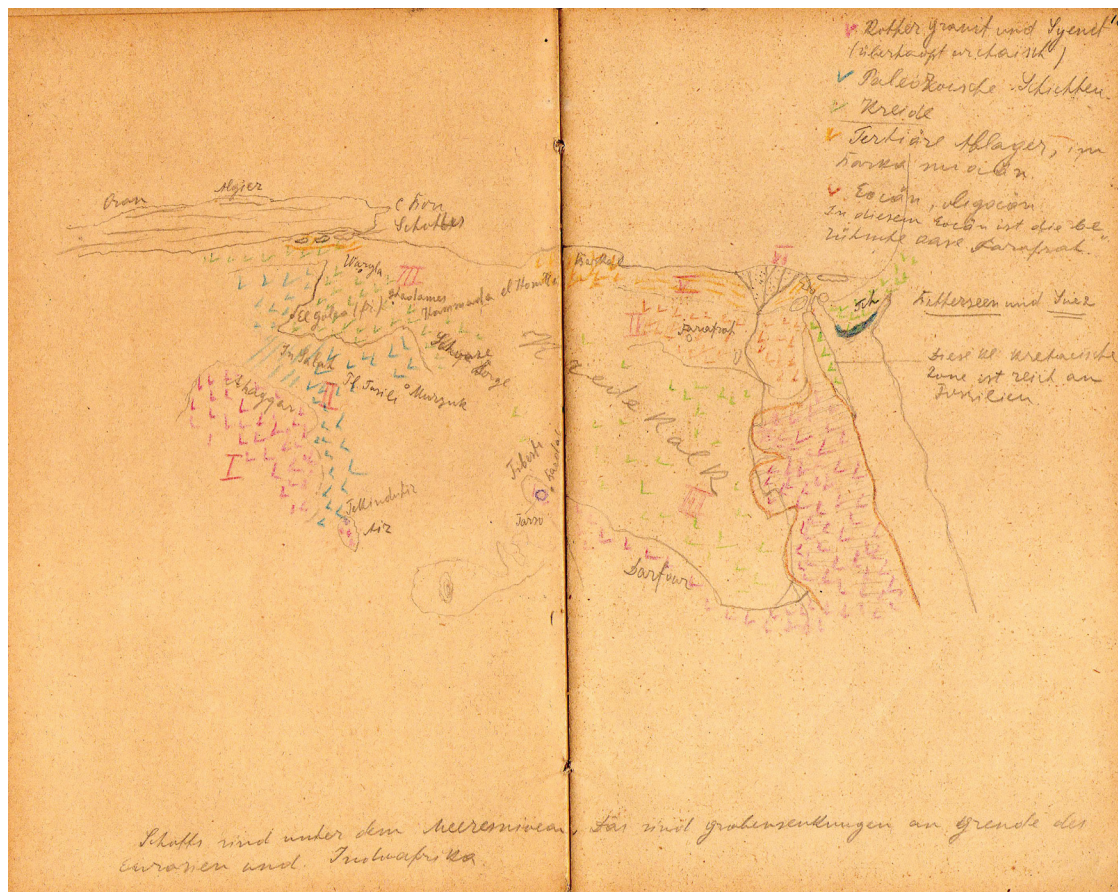 Rother Granit und Syenit
(überhaupt archaisch)
Paleozoische Schichten
Kreide
Tertiäre Ablager, im
Barka miocän
Eocän, oligocän
In diesem Eocän ist die be-
rühmte oase Farafrah.
Oran
Algier
C Bon
Schotts
Wargla
III
Ghadames
Hammada el Homra
El Golea
Schwarze
Berge
In Salah
Tf. Tasili
Murzuk
II
Ahaggar
I
Air
Tibesti
Tarso
V
VI
IV
Farafrah
III
Darfour
Bitterseen und Suez
Diese kl. kretacische
Zone ist reich an
Fossilien
Schotts sind unter dem Meeresniveau. Das sind grabensenkungen an grende des
Eurasien und Indoafrika